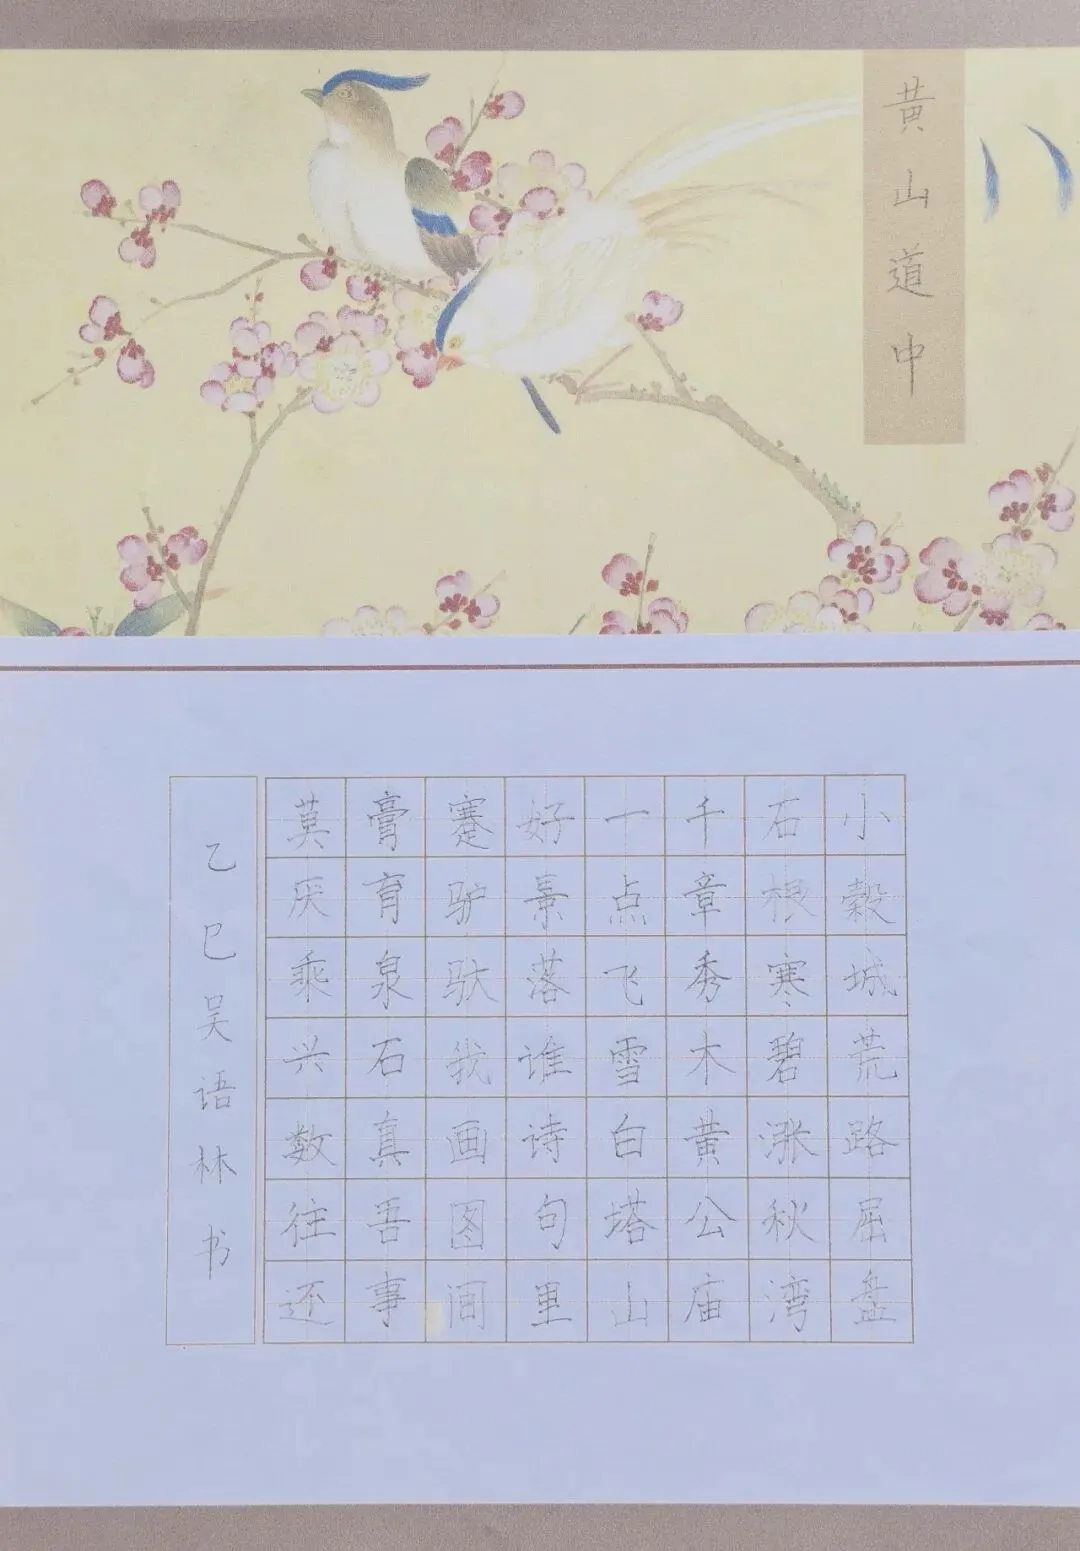 黄山道中
小榖城荒路屈盘
石根寒碧涨秋湾
千章秀木黄公庙
一点飞雪白塔山
好景落谁诗句里
蹇驴驮我画图间
膏育泉石真吾事
莫厌乘兴数往还
乙巳吴语林书